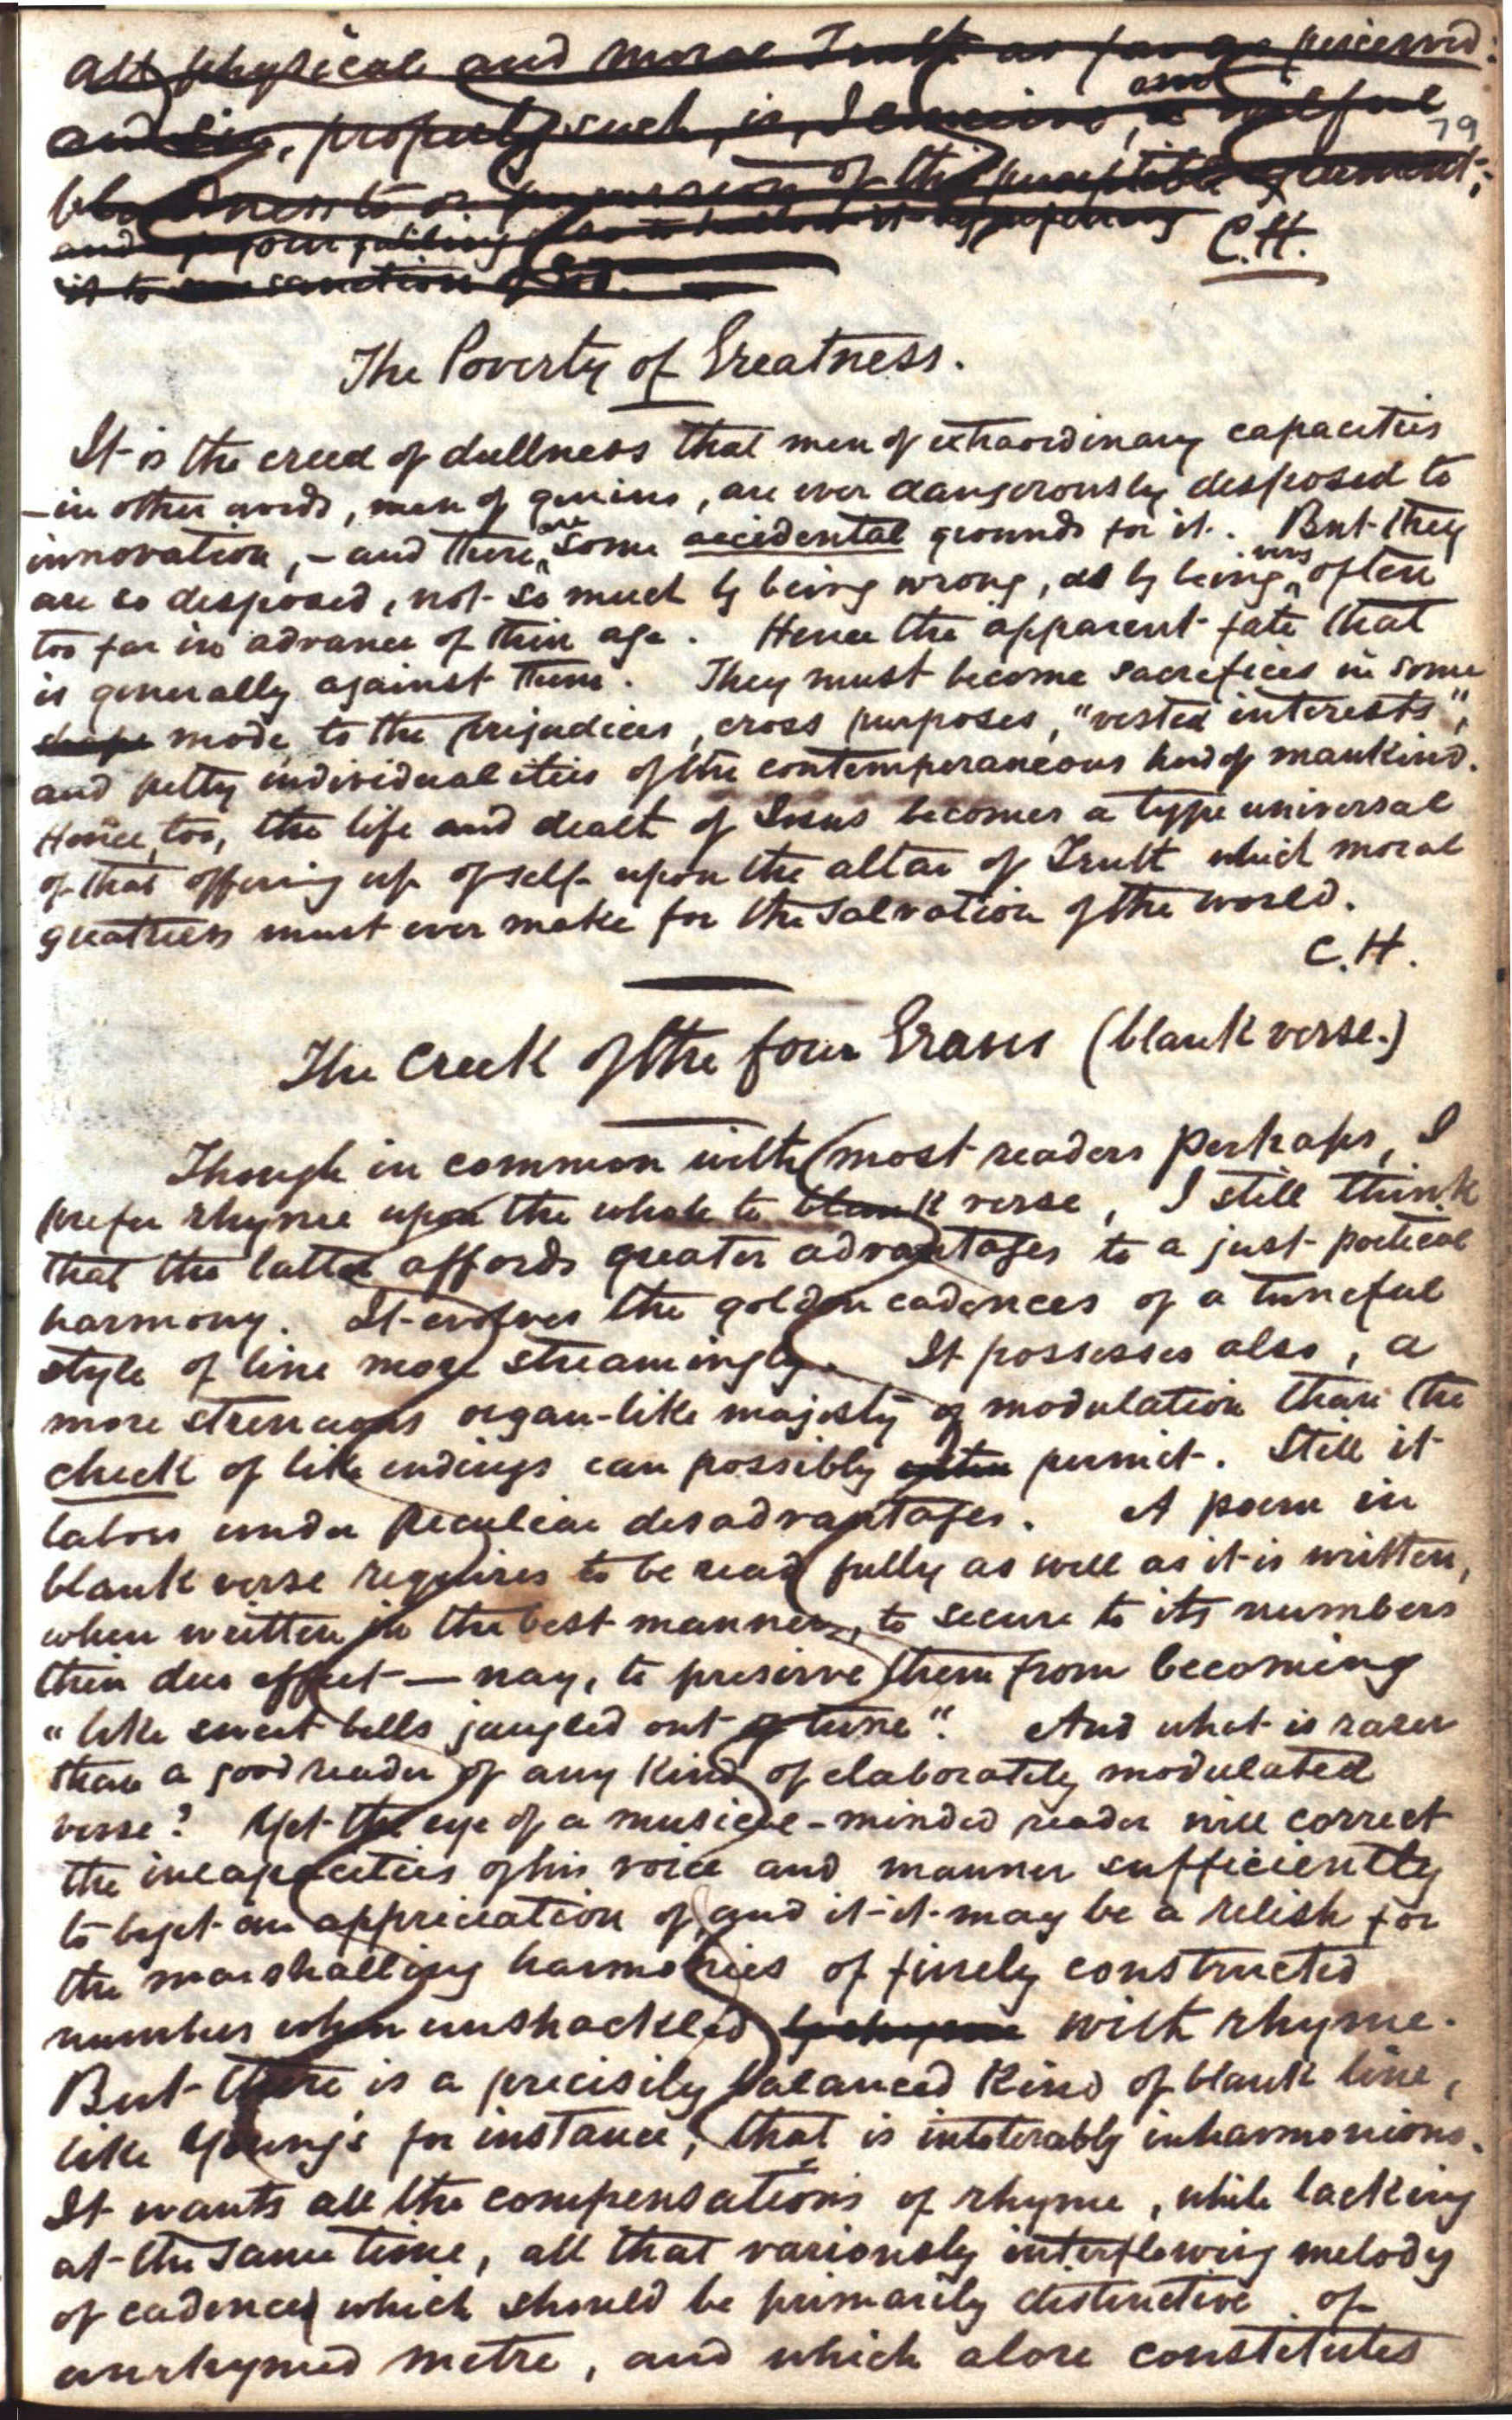 all physical and moral Truth as far as perceived:
and sin, properly such, is, I conceive, and a wilful
79
blindness to or of this perceptible agreement;
and
it to sanction of God.
C.H.
The Poverty of Greatness.
It is the creed of dullness that men of extraordinary capacities
– in other words, men of genius, are ever dangerously disposed to
innovation, – and there are some accidental grounds for it. But they
are so disposed, not so much by being wrong, as by being very often
too far in advance of their age. Hence the apparent fate that
is generally against them. They must become sacrifices in some
shape mode, to the prejudices, cross purposes, "vested interests",
and petty individualities of the contemporaneous herd of mankind.
Hence, too, the life and death of Jesus becomes a type universal
of that offering up of self upon the altar of Truth which moral
greatness must ever make for the salvation of the world.
C.H.
The Creek of the four Graves (blank verse.)
Though in common with most readers perhaps, I
prefer rhyme upon the whole to blank verse, I still think
that the latter affords greater advantages to a just poetical
harmony. It evolves the golden cadences of a tuneful
style of line more streamingly. It possesses also, a
more strenuous organ-like majesty of modulation than the
check of like endings can possibly permit. Still it
labors under peculiar disadvantages. A poem in
blank verse requires to be read fully as well as it is written,
when written in the best manner, to secure to its numbers
their due effect — nay, to preserve them from becoming
"like sweet bells jangled out of tune". And what is rarer
than a good reader of any kind of elaborately modulated
verse? Yet the eye of a musical-minded reader will correct
the incapacities of his voice and manner sufficiently
to beget an appreciation of, and it-it-may be a relish for
the marshalling harmonies of finely constructed
numbers when unshackled by rhyme with rhyme.
But there is a precisily balanced kind of blank line,
like Young's for instance, that is intolerably inharmonious.
It wants all the compensations of rhyme, while lacking
at the same time, all that variously interflowing melody
of cadence which should be primarily distinctive of
unrhymed metre, and which alone constitutes